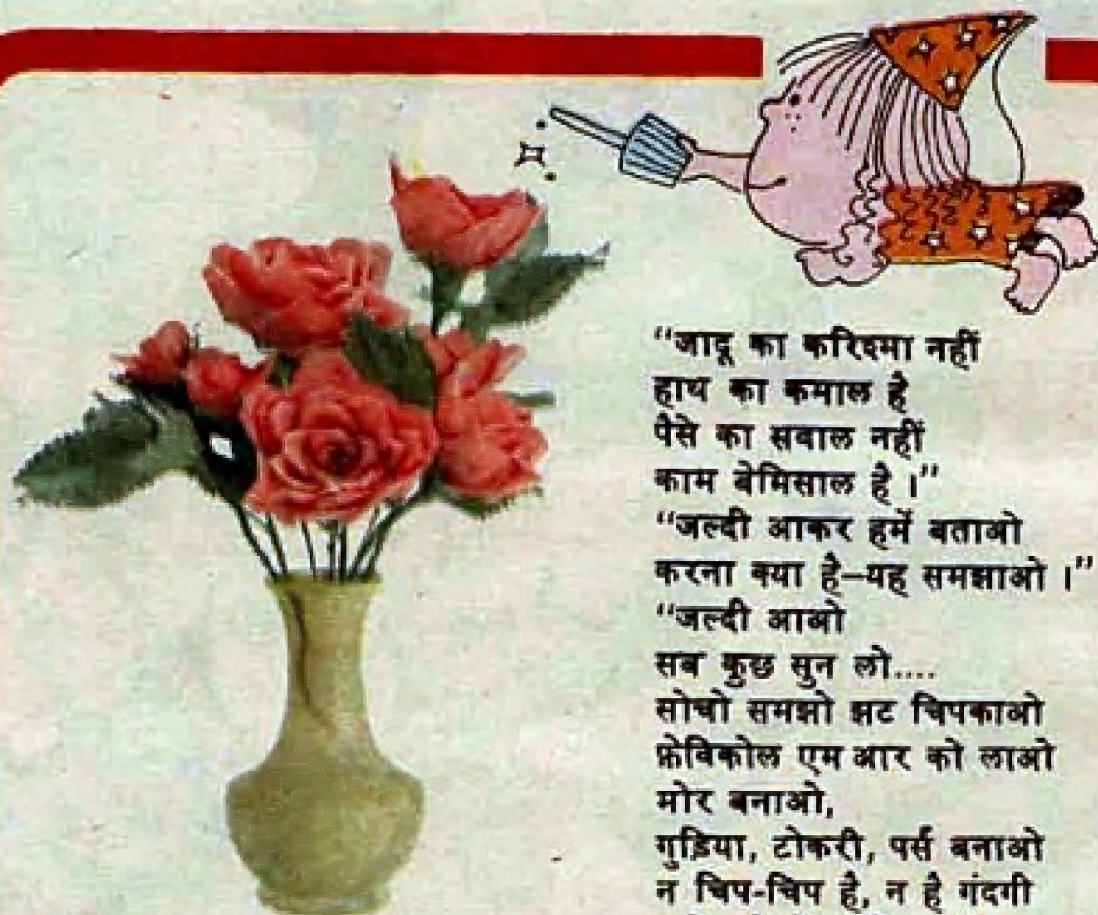 “जादू का करिश्मा नहीं
हाथ का कमाल है
पैसे का सवाल नहीं
काम बेमिसाल है ।”
“जल्दी आकर हमें बताओ
करना क्या है–यह समझाओ ।”
“जल्दी आओ
सब कुछ सुन लो....
सोचो समझो झट चिपकाओ
फ़ेविकोल एम आर को लाओ
मोर बनाओ,
गुड़िया, टोकरी, पर्स बनाओ
न चिप-चिप है, न है गंदगी